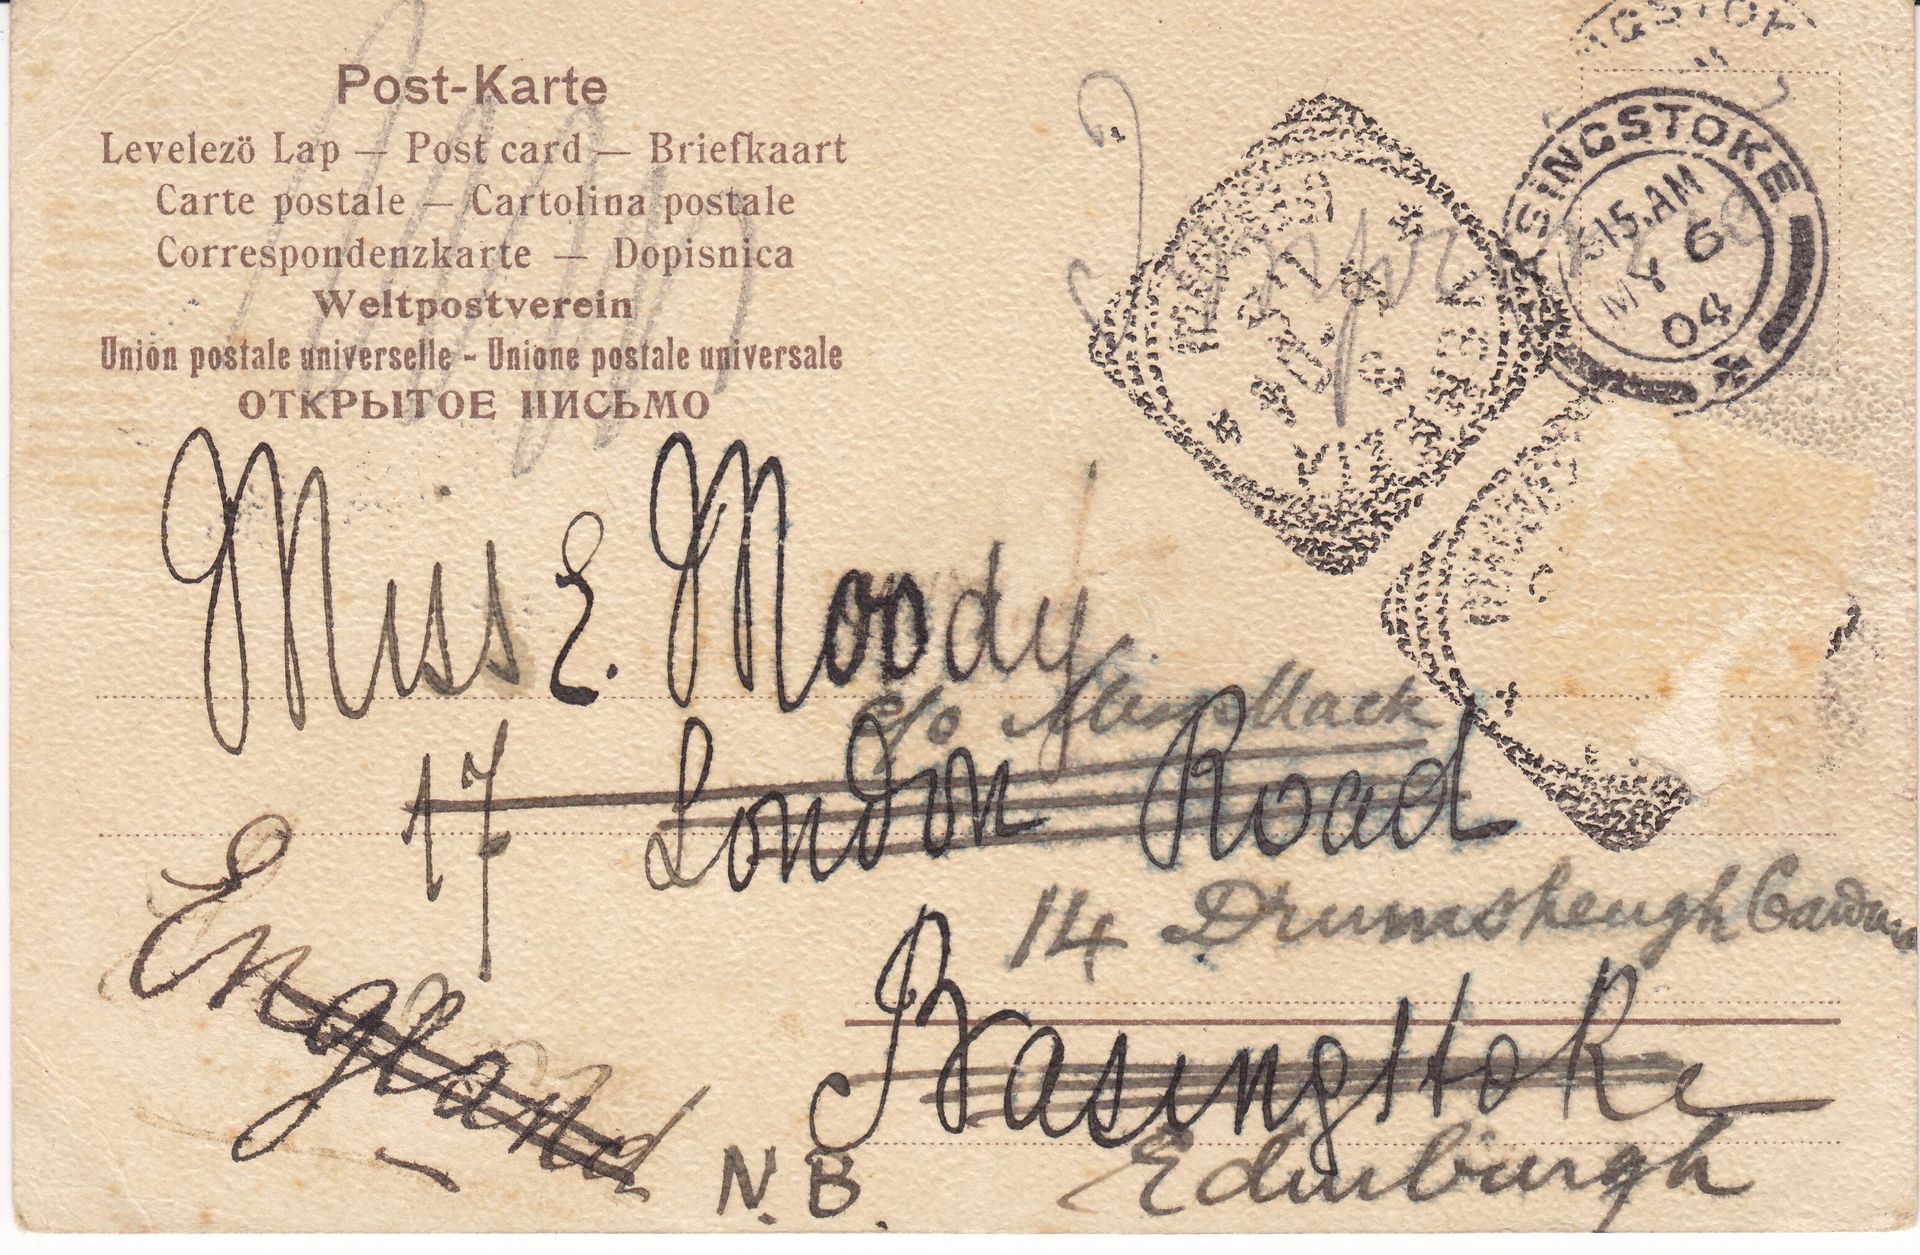 Post-Karte
Levelezö Lap — Post card — Briefkaart
Carte postale — Cartolina postale
Correspondenzkarte — Dopisnica
Weltpostverein
Union postale universelle - Unione postale universale
ОТКРЫТОЕ ПИСЬМО
INGSTOK
BASINGSTOKE
15.AM
MY 6
04
Miss E. Moody
c/o Miss Mack
17 London Road
14 Drumsheugh Gardens
England
Basingstoke
N.B. Edinburgh